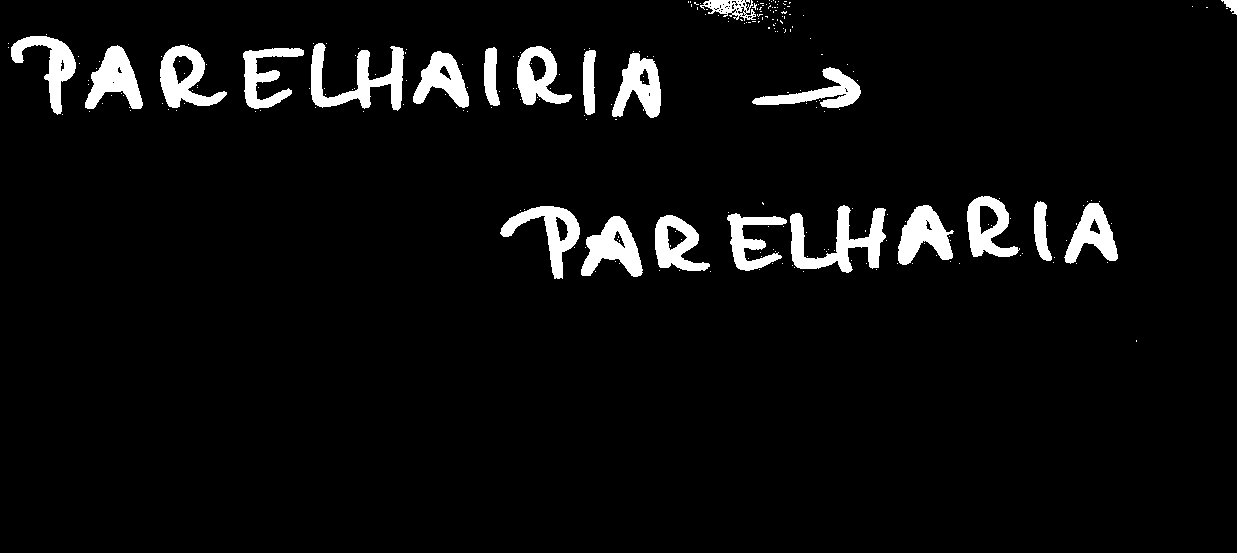 PARELHAIRIA →
PARELHARIA